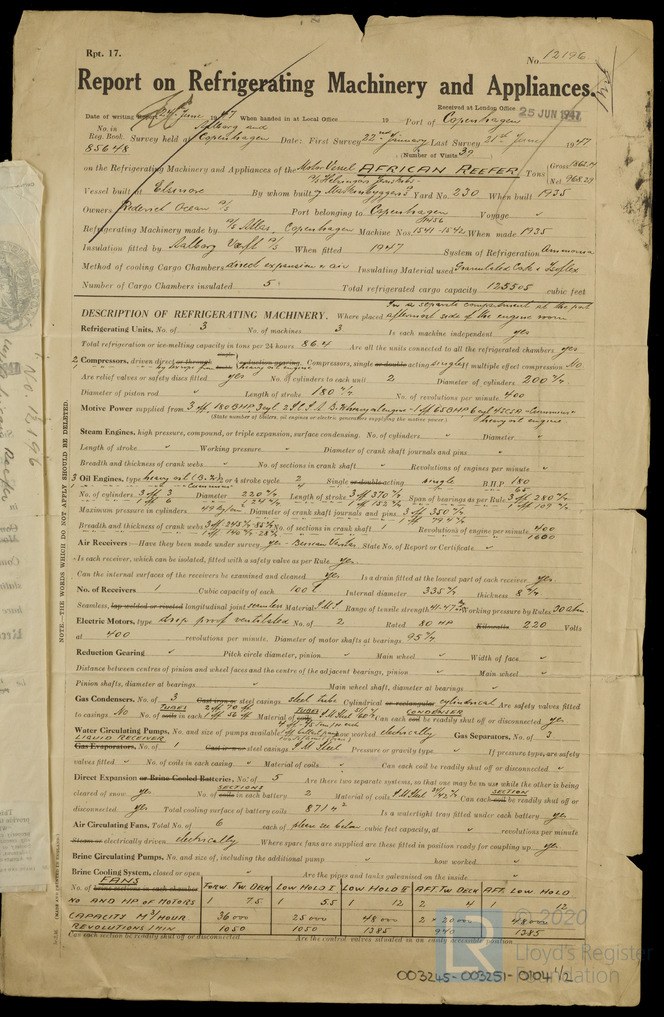 Rpt. 17.
No. 12196
Report on Refrigerating Machinery and Appliances.
Received at London Office 25 JUN 1947
Date of writing Report 24. June 1947 When handed in at Local Office 19 Port of Copenhagen
No. in Reg. Book. 85648 Survey held at Aalborg and Copenhagen Date: First Survey 22nd January Last Survey 21st June 1947
(Number of Visits 39
on the Refrigerating Machinery and Appliances of the Motor Vessel AFRICAN REEFER Tons Gross Net 968.29
Vessel built at Elsinore By whom built Yard No. 230 When built 1935
Owners Port belonging to Copenhagen Voyage "
Refrigerating Machinery made by A/S Atlas, Copenhagen Machine Nos. 1541-1542 When made 1935
Insulation fitted by Aalborg Værft A/S When fitted 1947 System of Refrigeration Ammonia
Method of cooling Cargo Chambers direct expansion & air Insulating Material used Granulated Cork & Isoflex
Number of Cargo Chambers insulated 5 Total refrigerated cargo capacity 125505 cubic feet
DESCRIPTION OF REFRIGERATING MACHINERY. Where placed In a separate compartment at the port aftermost side of the engine room
Refrigerating Units. No. of 3 No. of machines 3 Is each machine independent yes
Total refrigeration or ice-melting capacity in tons per 24 hours 86.4 Are all the units connected to all the refrigerated chambers yes
Compressors, driven direct or through reduction gearing. Compressors, single or double acting single; multiple effect compression No
Are relief valves or safety discs fitted yes No. of cylinders to each unit 2 Diameter of cylinders 200 m/m
Diameter of piston rod " Length of stroke 180 m/m No. of revolutions per minute 400
Motive Power supplied from
(State number of boilers, oil engines or electric generators supplying the motive power)
Steam Engines, high pressure, compound, or triple expansion, surface condensing. No. of cylinders " Diameter "
Length of stroke " Working pressure " Diameter of crank shaft journals and pins "
Breadth and thickness of crank webs " No. of sections in crank shaft " Revolutions of engines per minute "
Oil Engines, type 2 or 4 stroke cycle 2 4 Single or double acting single B.H.P. 180 65
No. of cylinders 3 off 3 1 off 6 Diameter 220 m/m Length of stroke 3 off 370 m/m 1 off 152 m/m Span of bearings as per Rule 3 off 280 m/m 1 off 109 m/m
Maximum pressure in cylinders Diameter of crank shaft journals and pins
Breadth and thickness of crank webs No. of sections in crank shaft 1 Revolutions of engines per minute 400 1600
Air Receivers—Have they been made under survey yes State No. of Report or Certificate "
Is each receiver, which can be isolated, fitted with a safety valve as per Rule yes
Can the internal surfaces of the receivers be examined and cleaned yes Is a drain fitted at the lowest part of each receiver yes
No. of Receivers 1 Cubic capacity of each 100 l Internal diameter 335 m/m thickness 8 m/m
Seamless, lap welded or riveted longitudinal joint seamless Material Range of tensile strength 41-47 Working pressure by Rules 30 atm
Electric Motors, type drip proof ventilated No. of 2 Rated 80 HP Kilowatts 220 Volts
at 400 revolutions per minute. Diameter of motor shafts at bearings 95 m/m
Reduction Gearing " Pitch circle diameter, pinion " Main wheel " Width of face "
Distance between centres of pinion and wheel faces and the centre of the adjacent bearings, pinion " Main wheel "
Pinion shafts, diameter at bearings " Main wheel shaft, diameter at bearings "
Gas Condensers, No. of 3 Cast iron or steel casings steel tube Cylindrical or rectangular cylindrical Are safety valves fitted
to casings No No. of coils in each TUBES Material of coils Can each coil be readily shut off or disconnected yes
Water Circulating Pumps, No. and size of pumps available how worked electrically Gas Separators, No. of 3
LIQUID RECEIVER
Gas Evaporators, No. of 1 Cast iron or steel casings S.M. Steel Pressure or gravity type. " If pressure type, are safety
valves fitted " No. of coils in each casing " Material of coils. " Can each coil be readily shut off or disconnected "
Direct Expansion or Brine Cooled Batteries, No. of 5 Are there two separate systems, so that one may be in use while the other is being
cleared of snow yes No. of coils SECTIONS in each battery 2 Material of coils Can each coil SECTION be readily shut off or
disconnected yes Total cooling surface of battery coils Is a watertight tray fitted under each battery yes
Air Circulating Fans, Total No. of 6 each of please see below cubic feet capacity, at " revolutions per minute
Steam or electrically driven electrically Where spare fans are supplied are these fitted in position ready for coupling up yes
Brine Circulating Pumps, No. and size of, including the additional pump " how worked "
Brine Cooling System, closed or open " Are the pipes and tanks galvanised on the inside "
FANS
No. of brine sections in each chamber FORW. TW DECK LOW HOLD I LOW HOLD II AFT. TW DECK AFT. LOW HOLD
NO AND HP OF MOTORS 1 7.5 1 5.5 1 12 2 4 1 12
CAPACITY M³/HOUR 36000 25000 48000 2 × 20000 48000
REVOLUTIONS / MIN 1050 1050 1385 940 1385
Can each section be readily shut off or disconnected Are the control valves situated in an easily accessible position
NOTE.—THE WORDS WHICH DO NOT APPLY SHOULD BE DELETED.
© 2020
Lloyd's Register
Foundation
003245-003251-0104 1/2